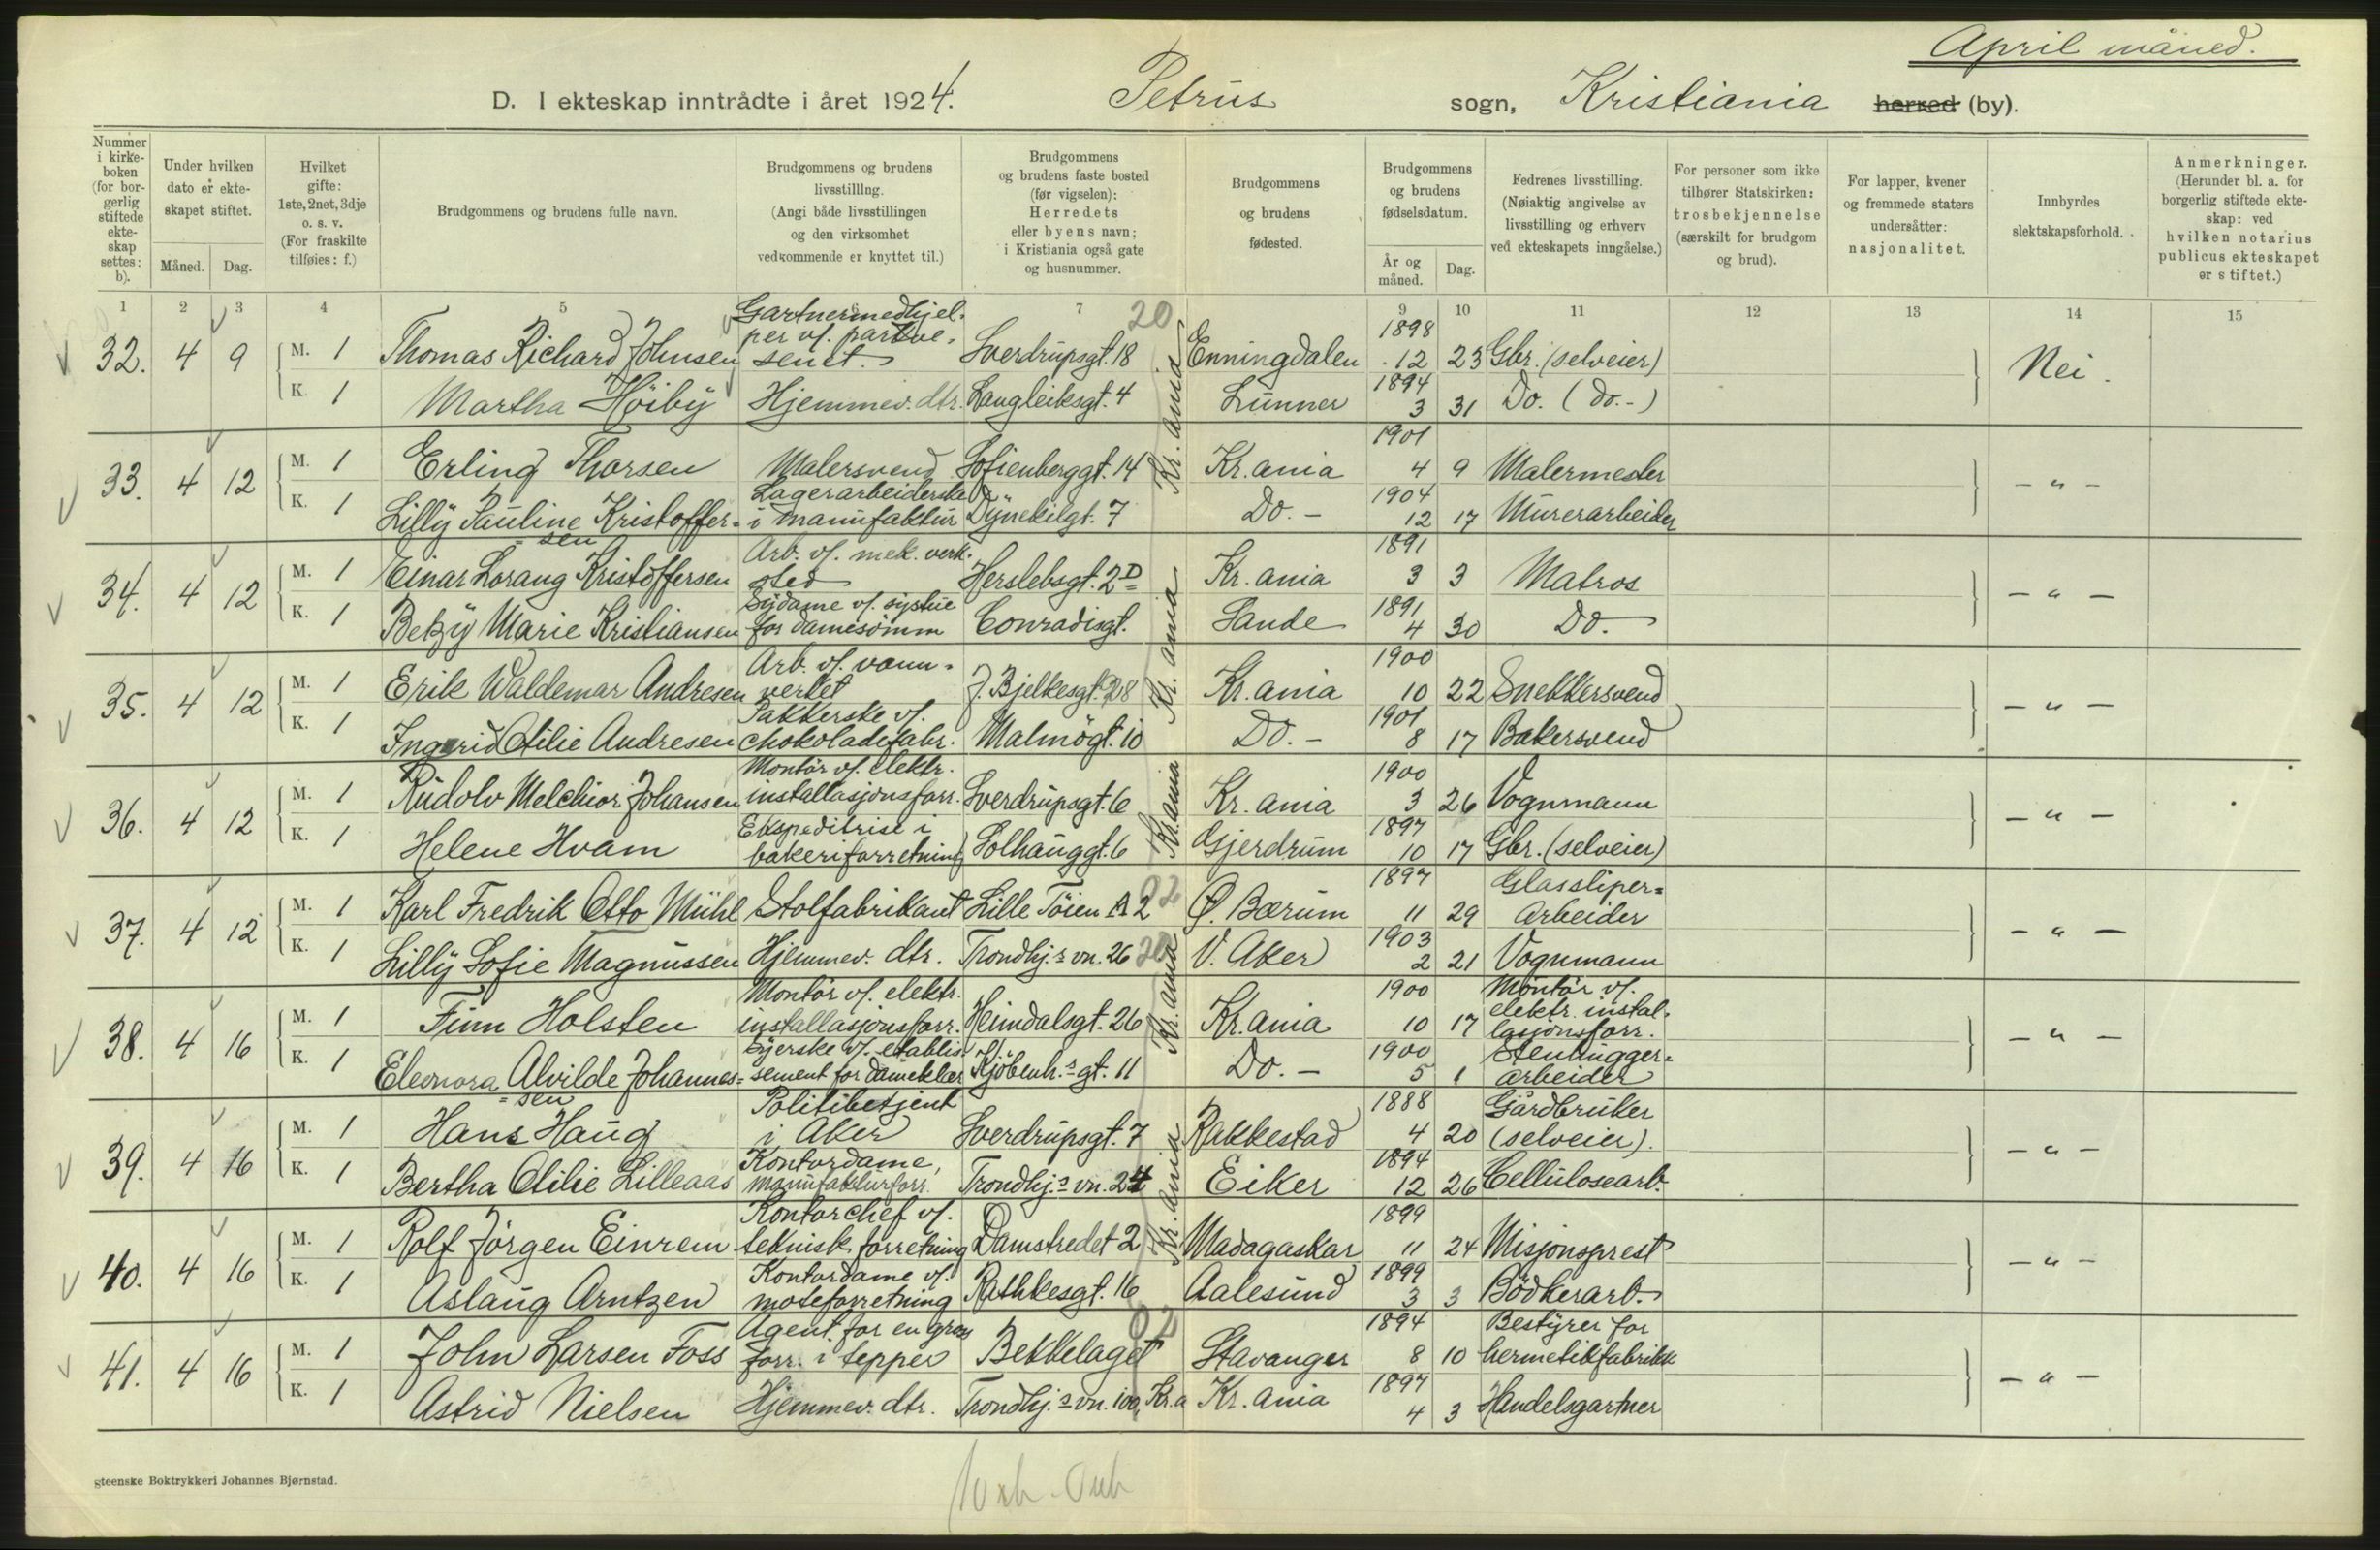 April måned.
D. I ekteskap inntrådte i året 1924. Petrus sogn, Kristiania herred (by).
Nummer i kirkeboken (for borgerlig stiftede ekteskap settes: b).
Under hvilken dato er ekteskapet stiftet.
Måned. Dag.
Hvilket gifte: 1ste, 2net, 3dje o. s. v. (For fraskilte tilføies: f.)
Brudgommens og brudens fulle navn.
Brudgommens og brudens livsstilling. (Angi både livsstillingen og den virksomhet vedkommende er knyttet til.)
Brudgommens og brudens faste bosted (før vigselen): Herredets eller byens navn; i Kristiania også gate og husnummer.
Brudgommens og brudens fødested.
Brudgommens og brudens fødselsdatum.
År og måned. Dag.
Fedrenes livsstilling. (Nøiaktig angivelse av livsstilling og erhverv ved ekteskapets inngåelse.)
For personer som ikke tilhører Statskirken: trosbekjennelse (særskilt for brudgom og brud).
For lapper, kvener og fremmede staters undersåtter: nasjonalitet.
Innbyrdes slektskapsforhold.
Anmerkninger. (Herunder bl. a. for borgerlig stiftede ekteskap: ved hvilken notarius publicus ekteskapet er stiftet.)
1 2 3 4 5 7 9 10 11 12 13 14 15
20
32. 4 9 M. 1 Thomas Richard Johnsen Gartnermedhjelper v/. parkvesenet. Sverdrupsgt. 18 Kr.ania Enningdalen 1898 12 23 Gbr. (selveier) Nei.
K. 1 Martha Höiby Hjemmev. dtr. Langleiksgt. 4 Lunner 1894 3 31 Do. (do.-)
33. 4 12 M. 1 Erling Thorsen Malersvend Sofienberggt. 14 Kr.ania 1901 4 9 Malermester - " -
K. 1 Lilly Pauline Kristoffer=sen Lagerarbeiderske i manufaktur Dynekilgt. 7 Do. - 1904 12 17 Murerarbeider
34. 4 12 M. 1 Einar Lorang Kristoffersen Arb. v/. mek. verksted Herslebsgt. 2D Kr.ania Kr.ania 1891 3 3 Matros - " -
K. 1 Betzy Marie Kristiansen Sydame v/. systue for damesömm Conradisgt. Sande 1891 4 30 Do.
35. 4 12 M. 1 Erik Waldemar Andresen Arb. v/. vannverket J. Bjelkesgt. 28 Kr.ania 1900 10 22 Snekkersvend - " -
K. 1 Ingrid Otilie Andresen Pakkerske v/. chokoladefabr. Malmögt. 10 Do. - 1901 8 17 Bakersvend
36. 4 12 M. 1 Rudolv Melchior Johansen Montör v/. elektr. installasjonsforr. Sverdrupsgt. 6 Kr.ania Kr.ania 1900 3 26 Vognmann - " -
K. 1 Helene Hvam Ekspeditrise i bakeriforretning Solhauggt. 6 Gjerdrum 1897 10 17 Gbr. (selveier)
37. 4 12 M. 1 Karl Fredrik Otto Mühl Stolfabrikant Lille Töien A 2 02 Ø. Bærum 1897 11 29 Glassliper=arbeider - " -
K. 1 Lilly Sofie Magnussen Hjemmev. dtr. Trondhj.s vn. 26 20 V. Aker 1903 2 21 Vognmann
38. 4 16 M. 1 Finn Holsten Montör v/. elektr. installasjonsforr. Heimdalsgt. 26 Kr.ania Kr.ania 1900 10 17 Montör v/. elektr. installasjonsforr. - " -
K. 1 Eleonora Alvilde Johannes=sen Syerske v/. etablissement for dameklær Kjöbenh.s gt. 11 Do. - 1900 5 1 Stenhugger=arbeider
39. 4 16 M. 1 Hans Haug Politibetjent i Aker Sverdrupsgt. 7 Kr.ania Rakkestad 1888 4 20 Gårdbruker (selveier). - " -
K. 1 Bertha Otilie Lilleaas Kontordame, manufakturforr. Trondhj.s vn. 24 Eiker 1894 12 26 Cellulosearb.
40. 4 16 M. 1 Rolf Jörgen Einrem Kontorchef v/. teknisk forretning Damstredet 2 Madagaskar 1899 11 24 Misjonsprest - " -
K. 1 Aslaug Arntzen Kontordame v/. moteforretning Rathkesgt. 16 Aalesund 1899 3 3 Bödkerarb.
41. 4 16 M. 1 John Larsen Foss Agent for en gros forr. i tepper Bekkelaget 02 Stavanger 1894 8 10 Bestyrer for hermetikfabrikk - " -
K. 1 Astrid Nielsen Hjemmev. dtr. Trondhj.s vn. 100, Kr.a Kr.ania 1897 4 3 Handelsgartner
steenske Boktrykkeri Johannes Bjørnstad.